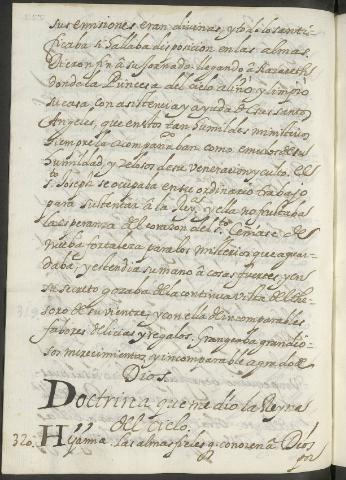 sus emisiones eran divinas, y todo lo santi-
ficaba si hallaba disposicion en las almas.
Dieron fin a su jornada llegando a Nazareth
donde la Princesa del cielo aliñó y limpió
su casa con asistencia y ayuda de sus santos
Angeles, que en estos tan humildes ministerios
siempre la acompañaban como emulos de su
humildad, y zelosos de su veneracion y culto. El
sto Joseph se ocupaba en su ordinario trabajo
para sustentar a la Reyna, y ella no frustaba
la esperanza del corazon del sto. Ceñiase de
nueba fortaleza para los misterios que aguar-
daba, y estendia su mano a cosas fuertes, y en
su secreto gozaba de la continua vista del the-
soro de su vientre, y con ella de incomparables
fabores delicias y regalos. Grangeaba grandio-
sos merecimientos y incomparable agrado de
Dios.
Doctrina que me dio la Reyna
del cielo.
320. Hija mia. las almas fieles q. conocen a Dios
por